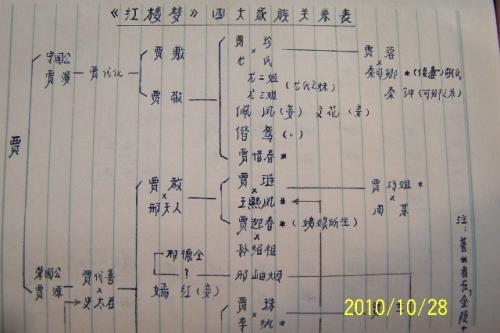 《红楼梦》四大家族关系表
贾
宁国公
贾演
贾代化
贾敷
贾敬
贾珍
×
尤氏
尤二姐
尤三姐
(尤氏之妹)
佩凤(妾) 文花(妾)
偕鸾(〃)
贾惜春*
贾蓉
×
秦可卿*
秦钟(可卿之弟)
荣国公
贾源
贾代善
×
史太君
贾赦
×
邢夫人
邢德全
?
嫣红(妾)
贾琏
×
王熙凤*
贾迎春*
×
孙绍祖
邢岫烟
贾珠
×
李纨*
贾巧姐*
×
周某
注:
2010/10/28